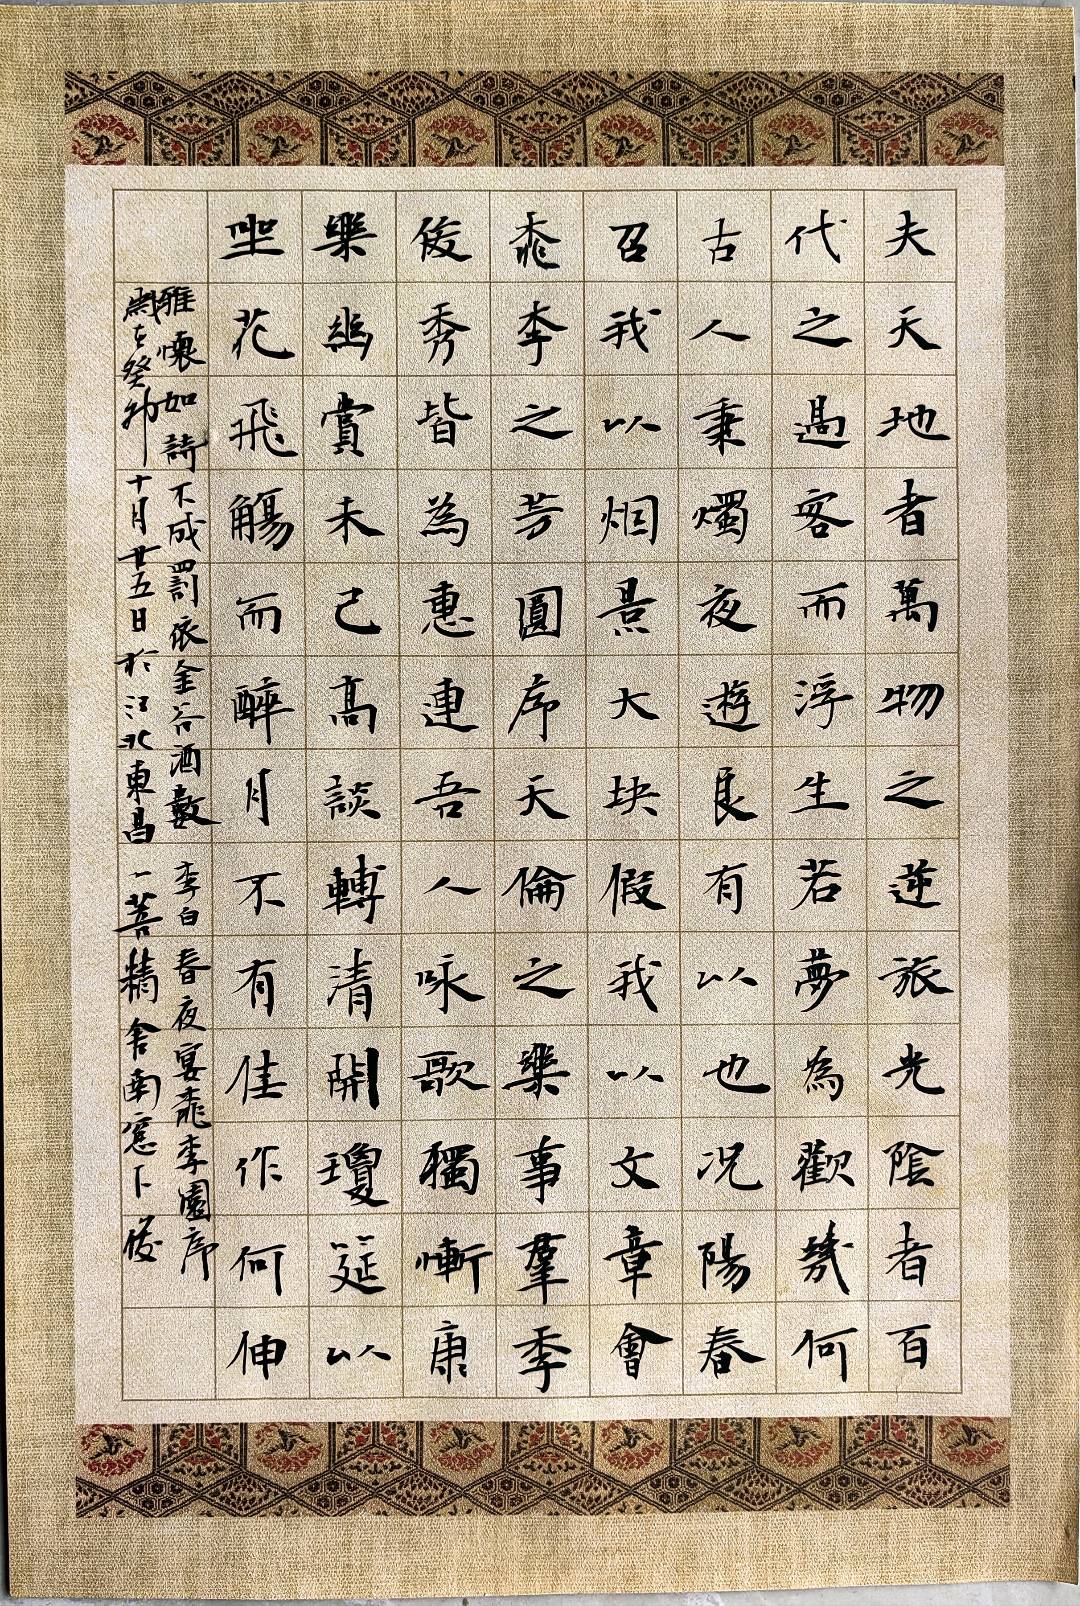 夫天地者萬物之逆旅光陰者百
代之過客而浮生若夢為歡幾何
古人秉燭夜遊良有以也況陽春
召我以烟景大块假我以文章會
桃李之芳園序天倫之樂事羣季
俊秀皆為惠連吾人咏歌獨慚康
樂幽賞未已高談轉清開瓊筵以
坐花飛觴而醉月不有佳作何伸
雅懷如詩不成罰依金谷酒數 李白春夜宴桃李園序
歲在癸卯十月廿五日於江北東昌一菩精舍南窓下 俊